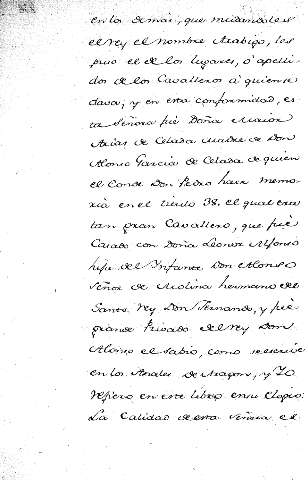 en los demas, que mudandoles
el rey el nombre Arabigo, les
puso el de los lugares, ò apelli-
dos de los Cavalleros à quien se
dava, y en esta conformidad, es
ta Señora fuè Doña Maior
Arias de Celada Madre de Don
Alonso Garcia de Celada de quien
el Conde Don Pedro hace memo-
ria en el titulo 38. el qual era
tan gran Cavallero, que fuè
Casado con Doña Leonor Alfonso
hija del Infante Don Alonso
Señor de Molina hermano del
Santo Rey Don Fernando, y fuè
grande Privado del rey Don
Alonso el Sabio, como se escrive
en los Anales de Aragon, y Yo
refiero en este libro en su Elogio:
La Calidad de esta Señora el